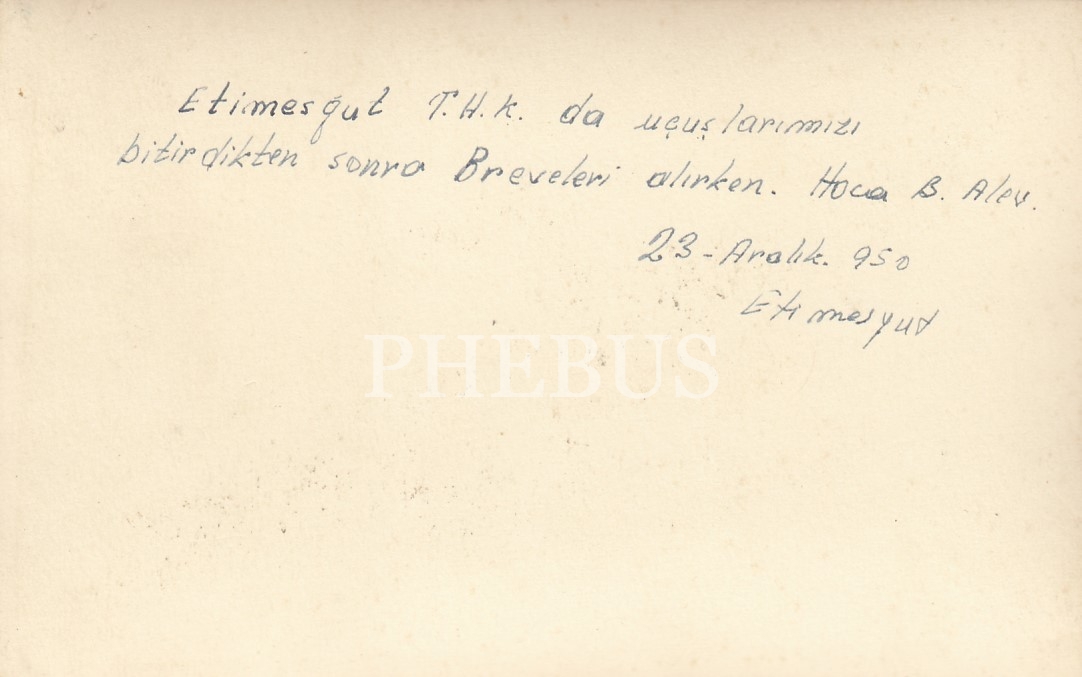 Etimesğut T.H.K. da uçuşlarımızı
bitirdikten sonra Breveleri alırken. Hoca B. Alev.
23-Aralık. 950
Etimesgut
PHEBUS